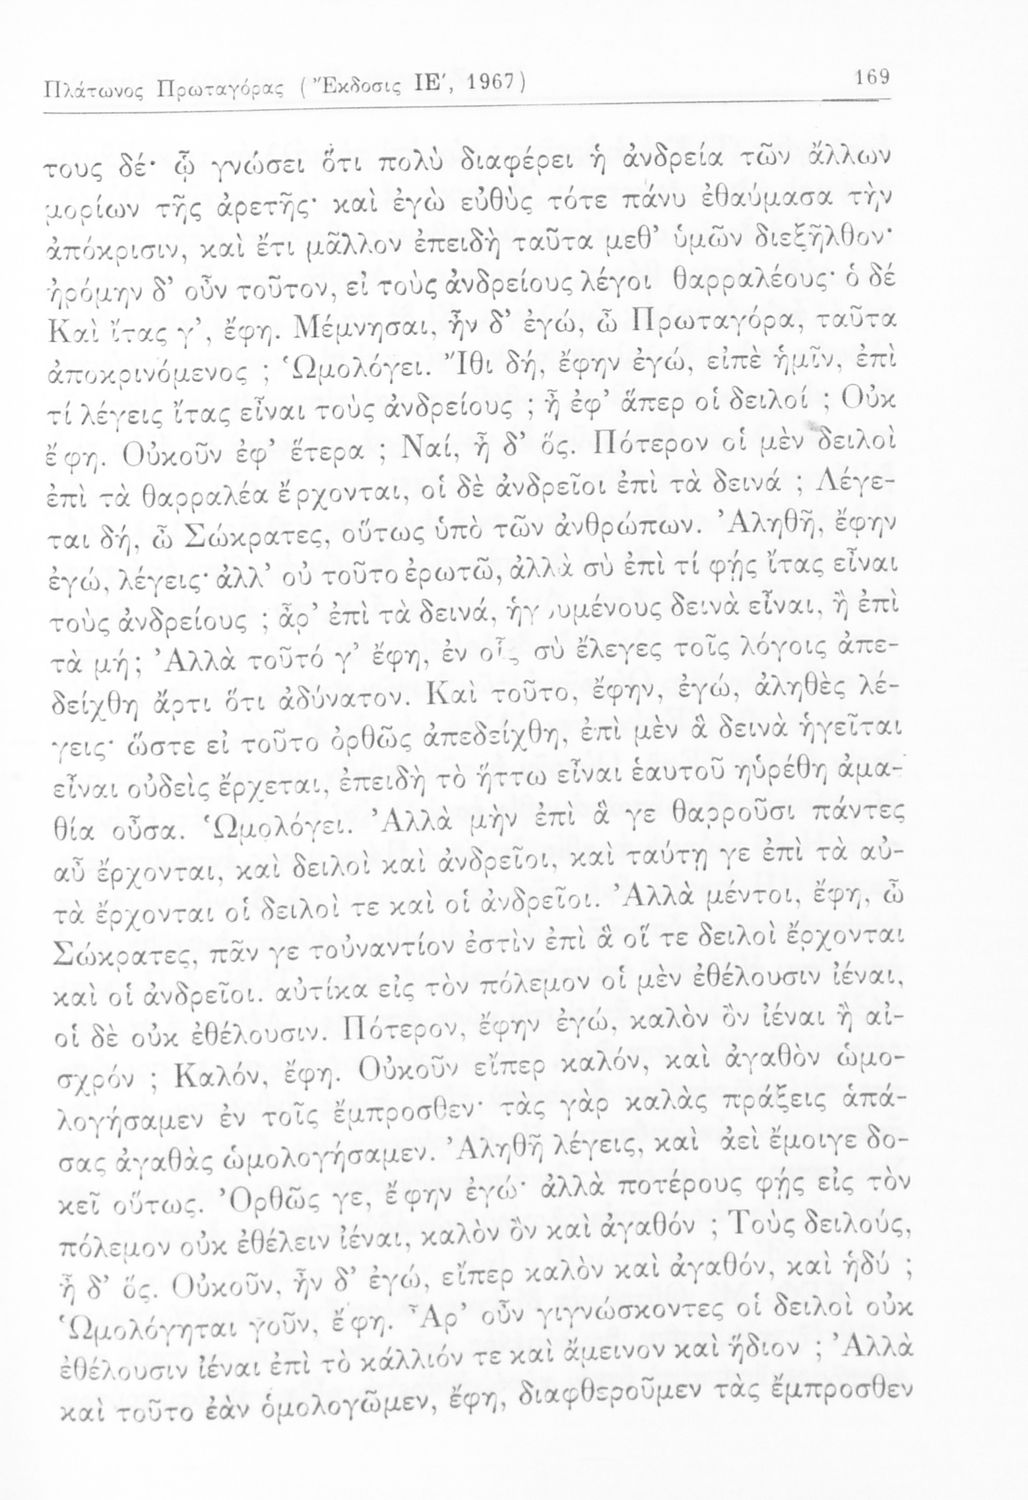 Πλάτωνος Πρωταγόρας ( Ἔκδοσις ΙΕ', 1967)
169
τους δέ· ᾧ γνώσει ὅτι πολὺ διαφέρει ἡ ἀνδρεία τῶν ἄλλων
μορίων τῆς ἀρετῆς· καὶ ἐγὼ εὐθὺς τότε πάνυ ἐθαύμασα τὴν
ἀπόκρισιν, καὶ ἔτι μᾶλλον ἐπειδὴ ταῦτα μεθ' ὑμῶν διεξῆλθον·
ἠρόμην δ' οὖν τοῦτον, εἰ τοὺς ἀνδρείους λέγοι θαρραλέους· ὁ δέ
Καὶ ἴτας γ', ἔφη. Μέμνησαι, ἦν δ' ἐγώ, ὦ Πρωταγόρα, ταῦτα
ἀποκρινόμενος ; Ὡμολόγει. Ἴθι δή, ἔφην ἐγώ, εἰπὲ ἡμῖν, ἐπὶ
τί λέγεις ἴτας εἶναι τοὺς ἀνδρείους ; ἦ ἐφ' ἅπερ οἱ δειλοί ; Οὐκ
ἔφη. Οὐκοῦν ἐφ' ἕτερα ; Ναί, ἦ δ' ὅς. Πότερον οἱ μὲν δειλοὶ
ἐπὶ τὰ θαρραλέα ἔρχονται, οἱ δὲ ἀνδρεῖοι ἐπὶ τὰ δεινά ; Λέγε-
ται δή, ὦ Σώκρατες, οὕτως ὑπὸ τῶν ἀνθρώπων. Ἀληθῆ, ἔφην
ἐγώ, λέγεις· ἀλλ' οὐ τοῦτο ἐρωτῶ, ἀλλὰ σὺ ἐπὶ τί φῄς ἴτας εἶναι
τοὺς ἀνδρείους ; ἆρ' ἐπὶ τὰ δεινά, ἡγουμένους δεινὰ εἶναι, ἢ ἐπὶ
τὰ μή; Ἀλλὰ τοῦτό γ' ἔφη, ἐν οἷς σὺ ἔλεγες τοῖς λόγοις ἀπε-
δείχθη ἄρτι ὅτι ἀδύνατον. Καὶ τοῦτο, ἔφην, ἐγώ, ἀληθὲς λέ-
γεις· ὥστε εἰ τοῦτο ὀρθῶς ἀπεδείχθη, ἐπὶ μὲν ἃ δεινὰ ἡγεῖται
εἶναι οὐδεὶς ἔρχεται, ἐπειδὴ τὸ ἥττω εἶναι ἑαυτοῦ ηὑρέθη ἀμα-
θία οὖσα. Ὡμολόγει. Ἀλλὰ μὴν ἐπὶ ἅ γε θαρροῦσι πάντες
αὖ ἔρχονται, καὶ δειλοὶ καὶ ἀνδρεῖοι, καὶ ταύτῃ γε ἐπὶ τὰ αὐ-
τὰ ἔρχονται οἱ δειλοί τε καὶ οἱ ἀνδρεῖοι. Ἀλλὰ μέντοι, ἔφη, ὦ
Σώκρατες, πᾶν γε τοὐναντίον ἐστὶν ἐπὶ ἃ οἵ τε δειλοὶ ἔρχονται
καὶ οἱ ἀνδρεῖοι. αὐτίκα εἰς τὸν πόλεμον οἱ μὲν ἐθέλουσιν ἰέναι,
οἱ δὲ οὐκ ἐθέλουσιν. Πότερον, ἔφην ἐγώ, καλὸν ὂν ἰέναι ἢ αἰ-
σχρόν ; Καλόν, ἔφη. Οὐκοῦν εἴπερ καλόν, καὶ ἀγαθὸν ὡμο-
λογήσαμεν ἐν τοῖς ἔμπροσθεν· τὰς γὰρ καλὰς πράξεις ἁπά-
σας ἀγαθὰς ὡμολογήσαμεν. Ἀληθῆ λέγεις, καὶ ἀεὶ ἔμοιγε δο-
κεῖ οὕτως. Ὀρθῶς γε, ἔφην ἐγώ· ἀλλὰ ποτέρους φῄς εἰς τὸν
πόλεμον οὐκ ἐθέλειν ἰέναι, καλὸν ὂν καὶ ἀγαθόν ; Τοὺς δειλούς,
ἦ δ' ὅς. Οὐκοῦν, ἦν δ' ἐγώ, εἴπερ καλὸν καὶ ἀγαθόν, καὶ ἡδύ ;
Ὡμολόγηται γοῦν, ἔφη. Ἆρ' οὖν γιγνώσκοντες οἱ δειλοὶ οὐκ
ἐθέλουσιν ἰέναι ἐπὶ τὸ κάλλιόν τε καὶ ἄμεινον καὶ ἥδιον ; Ἀλλὰ
καὶ τοῦτο ἐὰν ὁμολογῶμεν, ἔφη, διαφθεροῦμεν τὰς ἔμπροσθεν